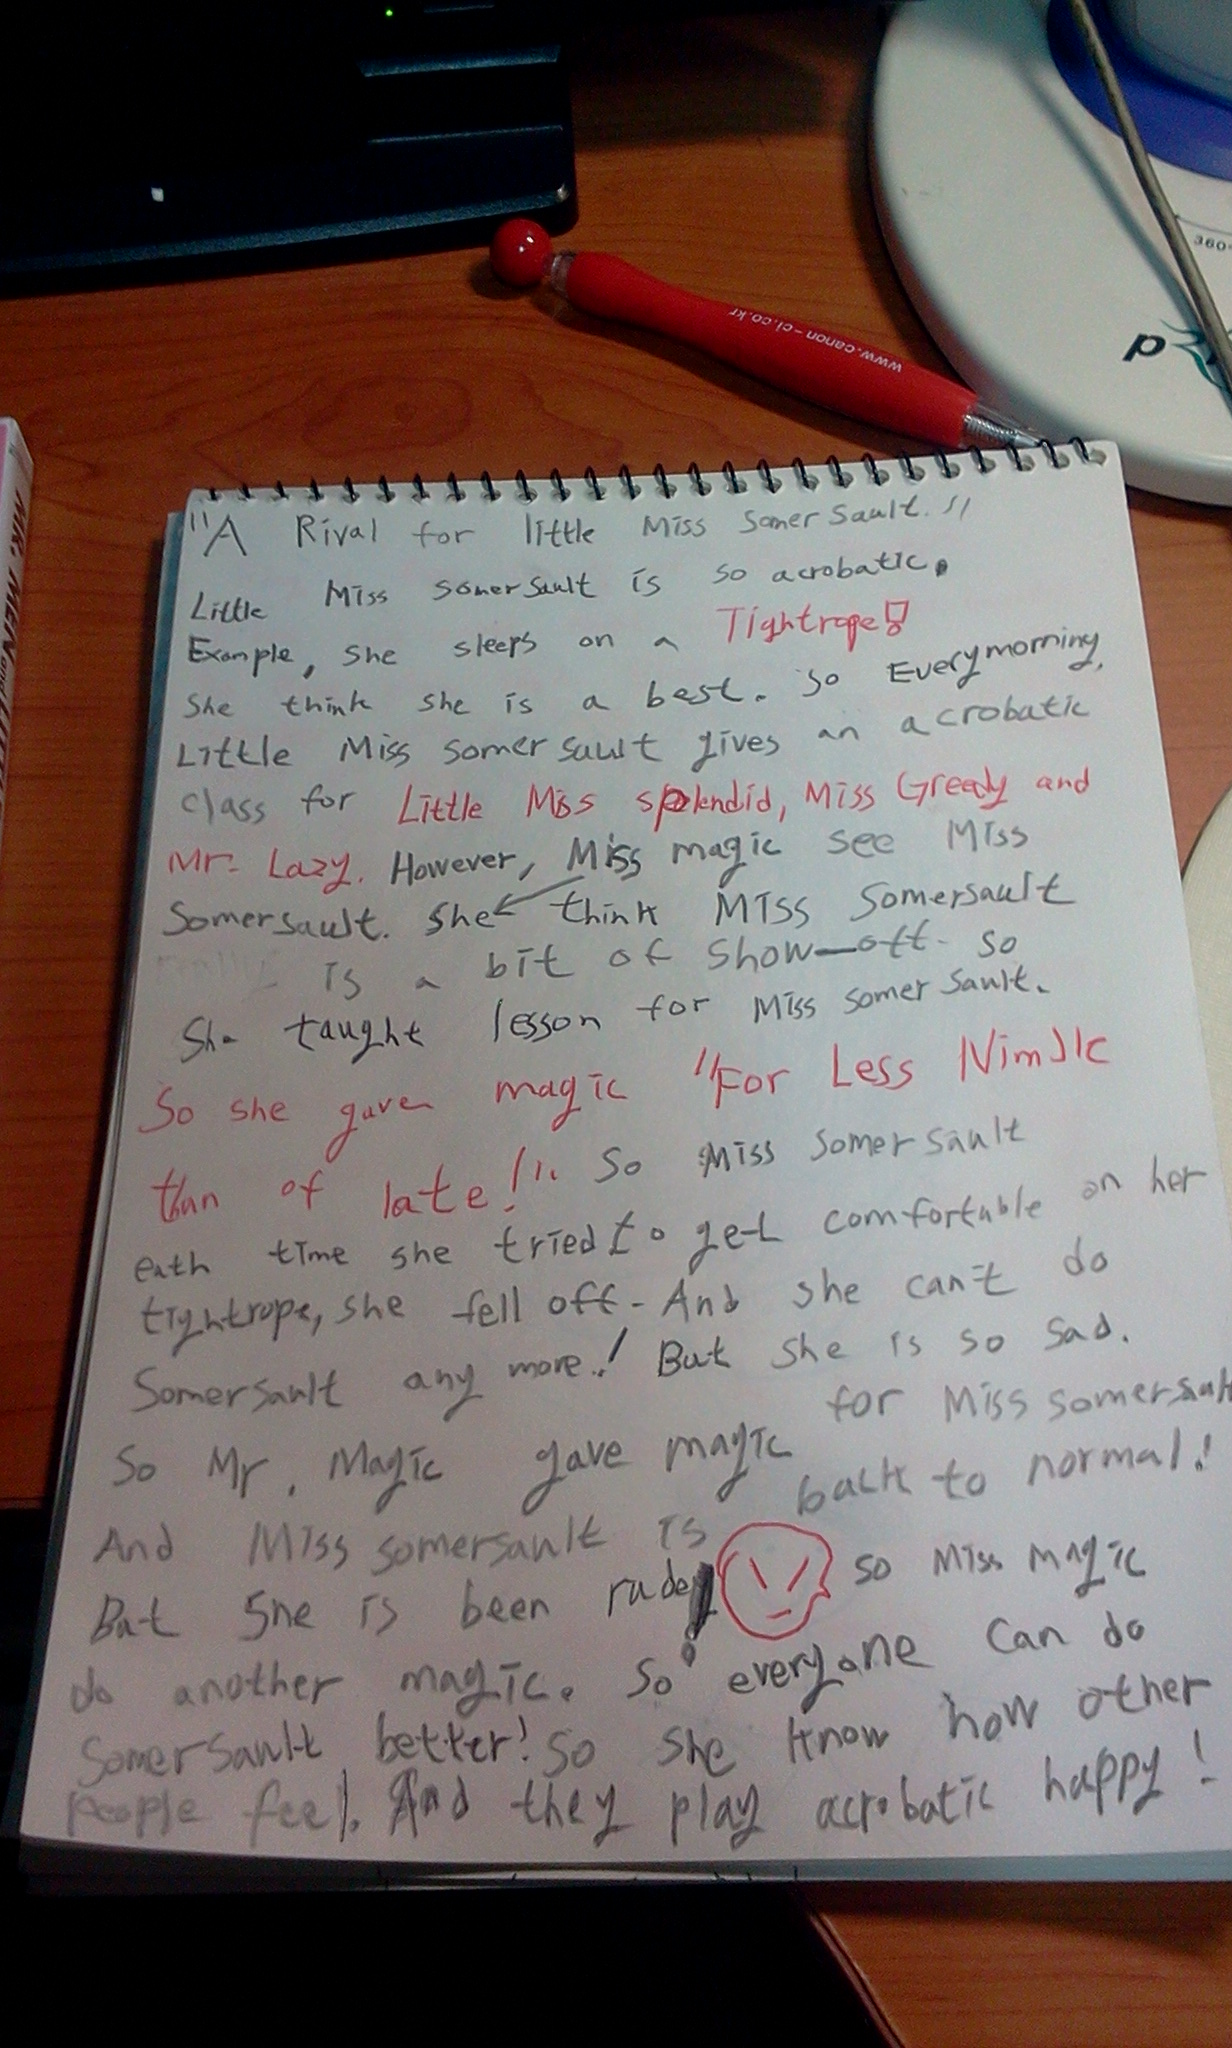 360-
p
www.canon-ci.co.kr
MR. MEN and LITTLE
"A Rival for little Miss somersault."
Little Miss somersault is so acrobatic.
Example, she sleeps on a Tightrope!
She think she is a best. so Everymorning,
Little Miss somersault gives an acrobatic
class for Little Miss splendid, Miss Greedy and
Mr. Lazy. However, Miss magic see Miss
Somersault. She think Miss Somersault
is a bit of show-off. so
She taught lesson for Miss somersault.
So she gaven magic "For Less Nimble
than of late!". So Miss somersault
eath time she tried to get comfortable on her
tightrope, she fell off. And she can't do
Somersault any more.! But she is so sad.
So Mr. Magic gave magic for Miss somersault
And Miss somersault is back to normal!
But She is been rude! so Miss Magic
do another magic. So everyone can do
Somersault better! so she know how other
people feel. And they play acrobatic happy!